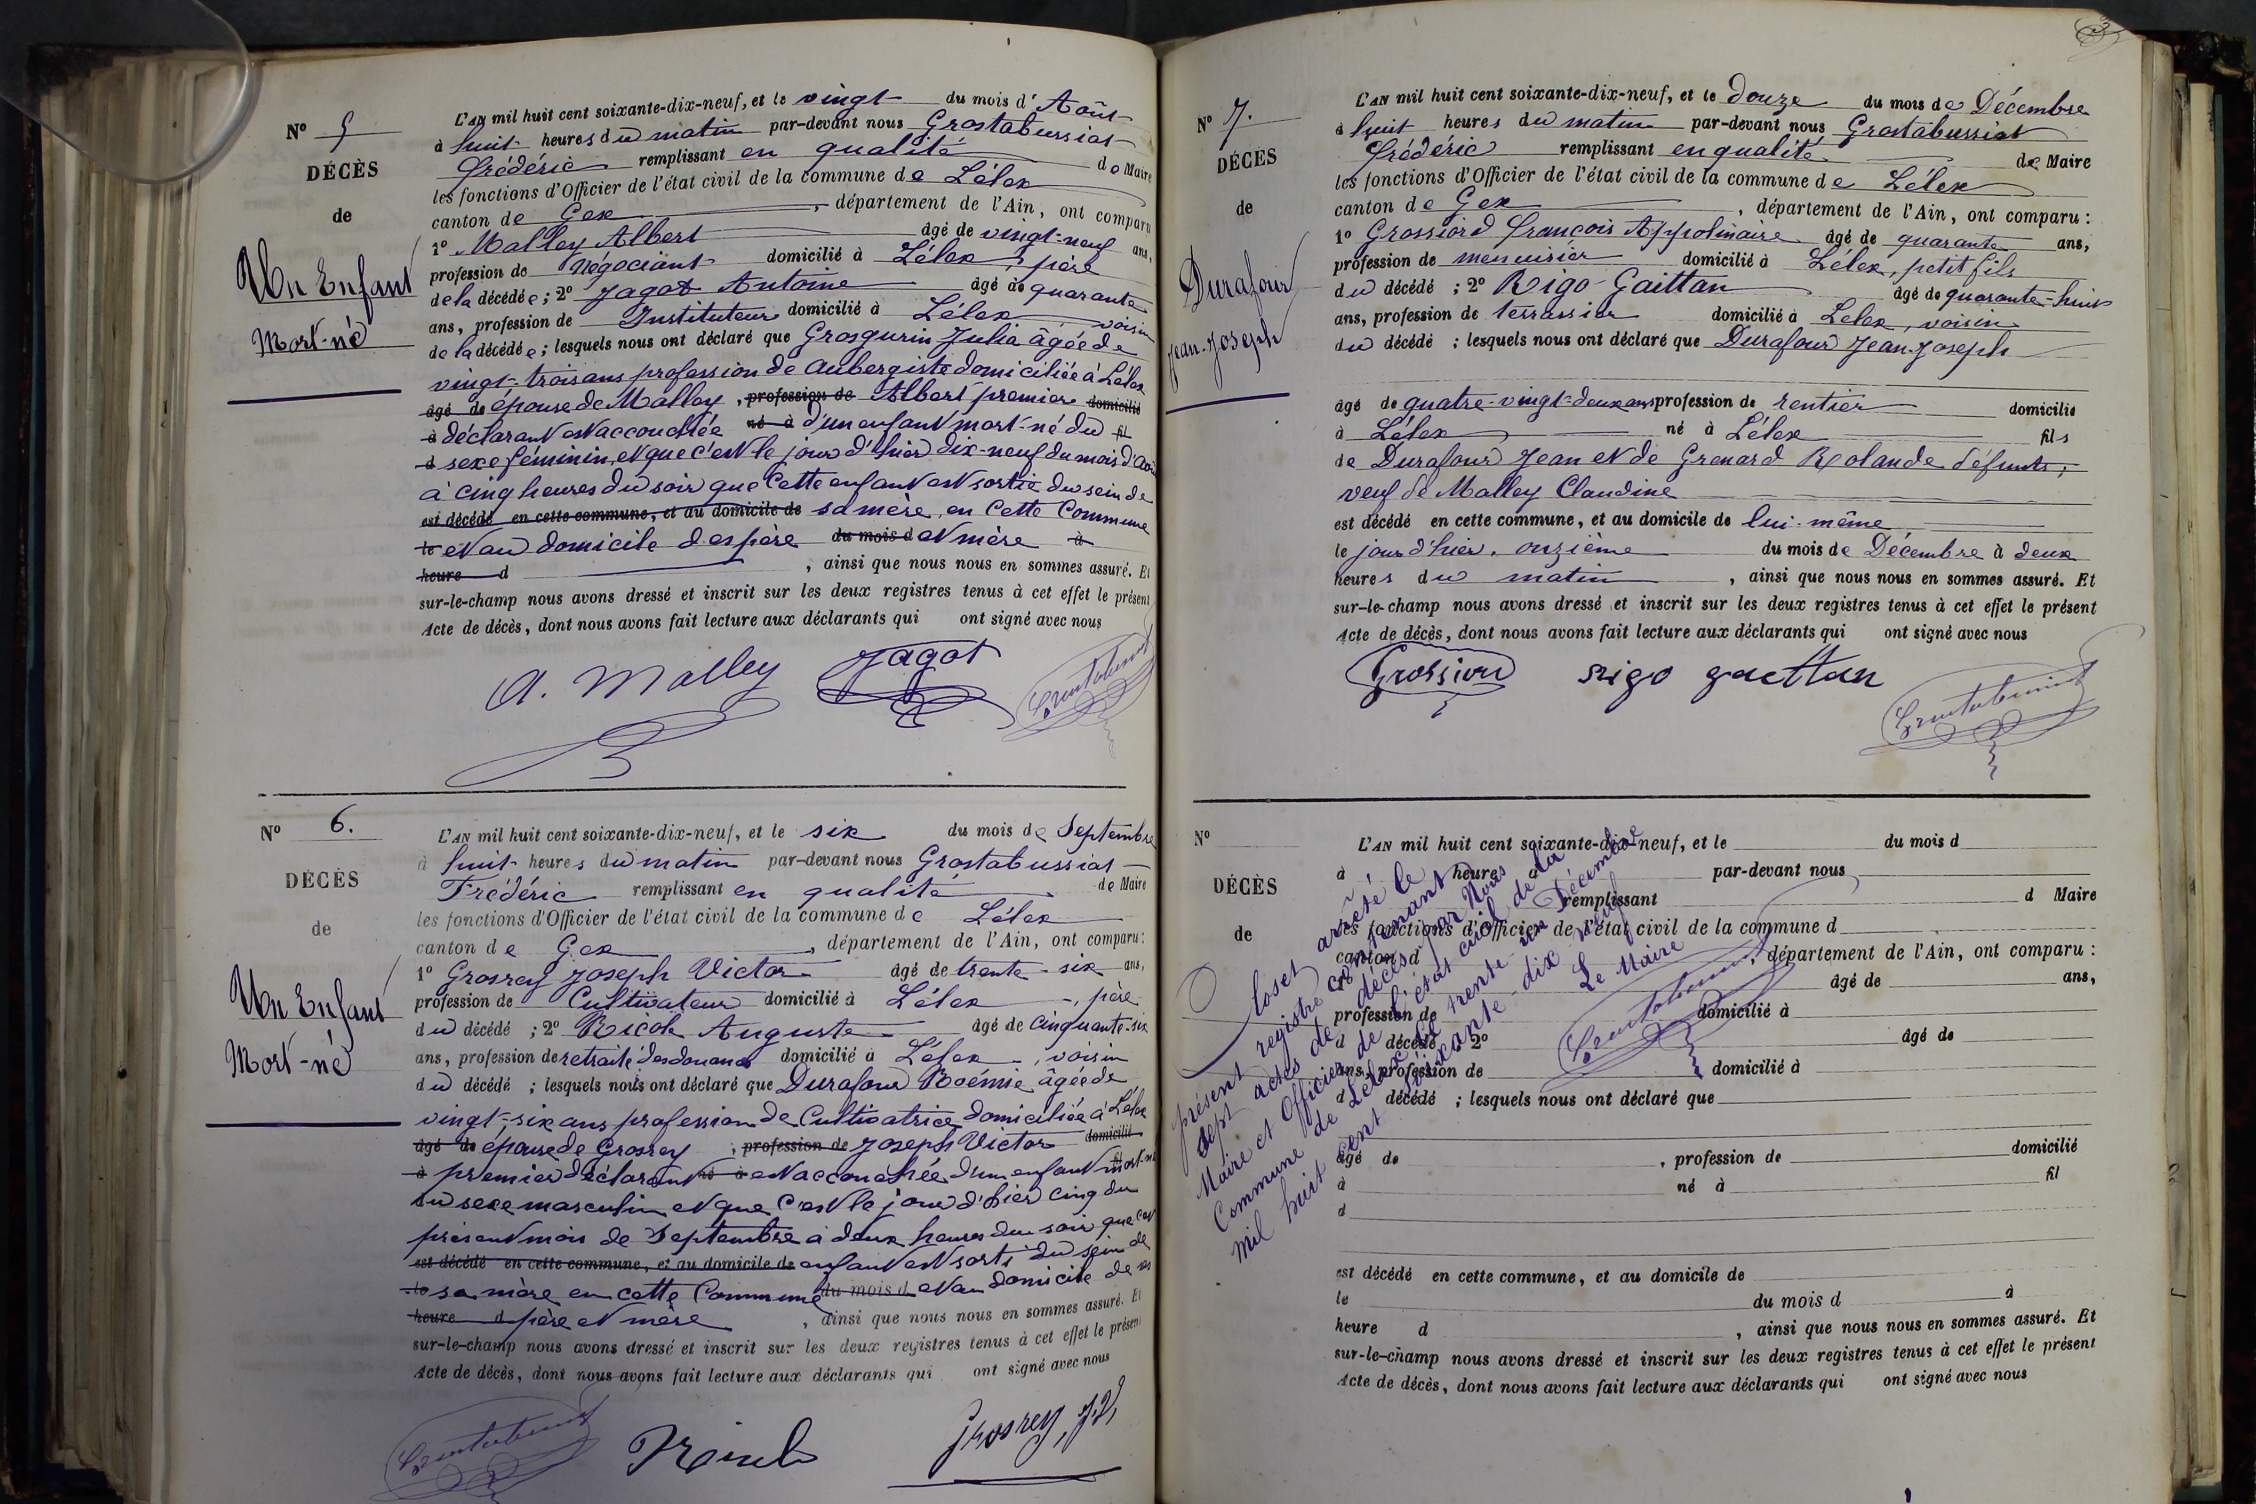 N° 5
DÉCÈS
de
Un Enfant
Mort-né
L'AN mil huit cent soixante-dix-neuf, et le vingt du mois d'Août
à huit heures du matin par-devant nous Grostabussiat
Frédéric remplissant en qualité de Maire
les fonctions d'Officier de l'état civil de la commune de Lélex
canton de Gex, département de l'Ain, ont comparu
1° Malley Albert âgé de vingt-neuf ans,
profession de Négociant domicilié à Lélex, père
de la décédée; 2° Jagot Antoine âgé de quarante
ans, profession de Instituteur domicilié à Lélex voisin
de la décédée; lesquels nous ont déclaré que Grosgurin Julia âgée de
vingt-trois ans profession de aubergiste domiciliée à Lélex
âgé de épouse de Malley, profession de Albert premier domicilié
à déclarant est accouchée né à d'un enfant mort-né du fil
d sexe féminin, et que c'est le jour d'hier dix-neuf du mois d'Août
à cinq heures du soir que cette enfant est sortie du sein de
est décédé en cette commune, et au domicile de sa mère, en cette Commune
le et au domicile des père du mois d et mère à
heure d , ainsi que nous nous en sommes assuré. Et
sur-le-champ nous avons dressé et inscrit sur les deux registres tenus à cet effet le présent
Acte de décès, dont nous avons fait lecture aux déclarants qui ont signé avec nous
A. Malley Jagot Grostabussiat
N° 6.
DÉCÈS
de
Un Enfant
Mort-né
L'AN mil huit cent soixante-dix-neuf, et le six du mois de Septembre
à huit heures du matin par-devant nous Grostabussiat
Frédéric remplissant en qualité de Maire
les fonctions d'Officier de l'état civil de la commune de Lélex
canton de Gex, département de l'Ain, ont comparu:
1° Grosrey Joseph Victor âgé de trente-six ans,
profession de Cultivateur domicilié à Lélex, père
du décédé; 2° Ricole Auguste âgé de cinquante-six
ans, profession de retraité des douanes domicilié à Lélex, voisin
du décédé; lesquels nous ont déclaré que Durafour Noémie âgée de
vingt-six ans profession de Cultivatrice domiciliée à Lélex
âgé de épouse de Grosrey, profession de Joseph Victor domicilié
à premier déclarant né à est accouchée d'un enfant fil mort-né
du sexe masculin et que c'est le jour d'hier cinq du
présent mois de Septembre à deux heures du soir que cet
est décédé en cette commune, et au domicile de enfant est sorti du sein de
le sa mère en cette Commune du mois d et au domicile de ses
heure d père et mère, ainsi que nous nous en sommes assuré. Et
sur-le-champ nous avons dressé et inscrit sur les deux registres tenus à cet effet le présent
Acte de décès, dont nous avons fait lecture aux déclarants qui ont signé avec nous
Grostabussiat Grosrey, J.V.
N° 7.
DÉCÈS
de
Durafour
Jean-Joseph
L'AN mil huit cent soixante-dix-neuf, et le douze du mois de Décembre
à huit heures du matin par-devant nous Grostabussiat
Frédéric remplissant en qualité de Maire
les fonctions d'Officier de l'état civil de la commune de Lélex
canton de Gex, département de l'Ain, ont comparu:
1° Grossiord François Appolinaire âgé de quarante ans,
profession de menuisier domicilié à Lélex, petit fils
du décédé; 2° Rigo Gaittan âgé de quarante-huit
ans, profession de terrassier domicilié à Lélex, voisin
du décédé; lesquels nous ont déclaré que Durafour Jean-Joseph
âgé de quatre-vingt-deux ans profession de rentier domicilié
à Lélex né à Lélex fils
de Durafour Jean et de Grenard Rolande défunts,
veuf de Malley Claudine
est décédé en cette commune, et au domicile de lui-même
le jour d'hier, onzième du mois de Décembre à deux
heures du matin, ainsi que nous nous en sommes assuré. Et
sur-le-champ nous avons dressé et inscrit sur les deux registres tenus à cet effet le présent
Acte de décès, dont nous avons fait lecture aux déclarants qui ont signé avec nous
Grossiord rigo gaettan Grostabussiat
N°
DÉCÈS
de
L'AN mil huit cent soixante-dix-neuf, et le du mois d
à heure d par-devant nous
remplissant d Maire
les fonctions d'Officier de l'état civil de la commune d
canton d , département de l'Ain, ont comparu:
1° âgé de ans,
profession de domicilié à
d décédé 2° âgé de
ans, profession de domicilié à
d décédé ; lesquels nous ont déclaré que
âgé de , profession de domicilié
à né à fil
d
est décédé en cette commune, et au domicile de
le du mois d à
heure d , ainsi que nous nous en sommes assuré. Et
sur-le-champ nous avons dressé et inscrit sur les deux registres tenus à cet effet le présent
Acte de décès, dont nous avons fait lecture aux déclarants qui ont signé avec nous
Closet arrêté le
présent registre contenant
sept actes de décès par Nous
Maire et Officier de l'état civil de la
Commune de Lélex le trente un Décembre
mil huit cent soixante-dix neuf
Le Maire
Grostabussiat